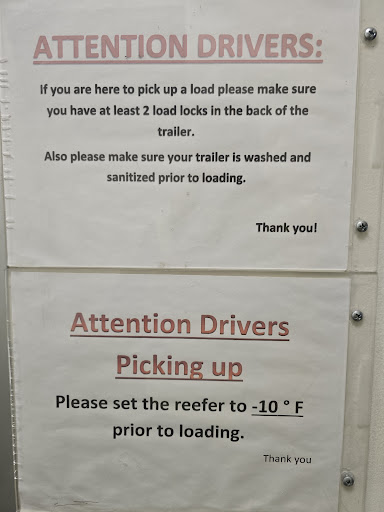 ATTENTION DRIVERS:
If you are here to pick up a load please make sure
you have at least 2 load locks in the back of the
trailer.
Also please make sure your trailer is washed and
sanitized prior to loading.
Thank you!
Attention Drivers
Picking up
Please set the reefer to -10 ° F
prior to loading.
Thank you